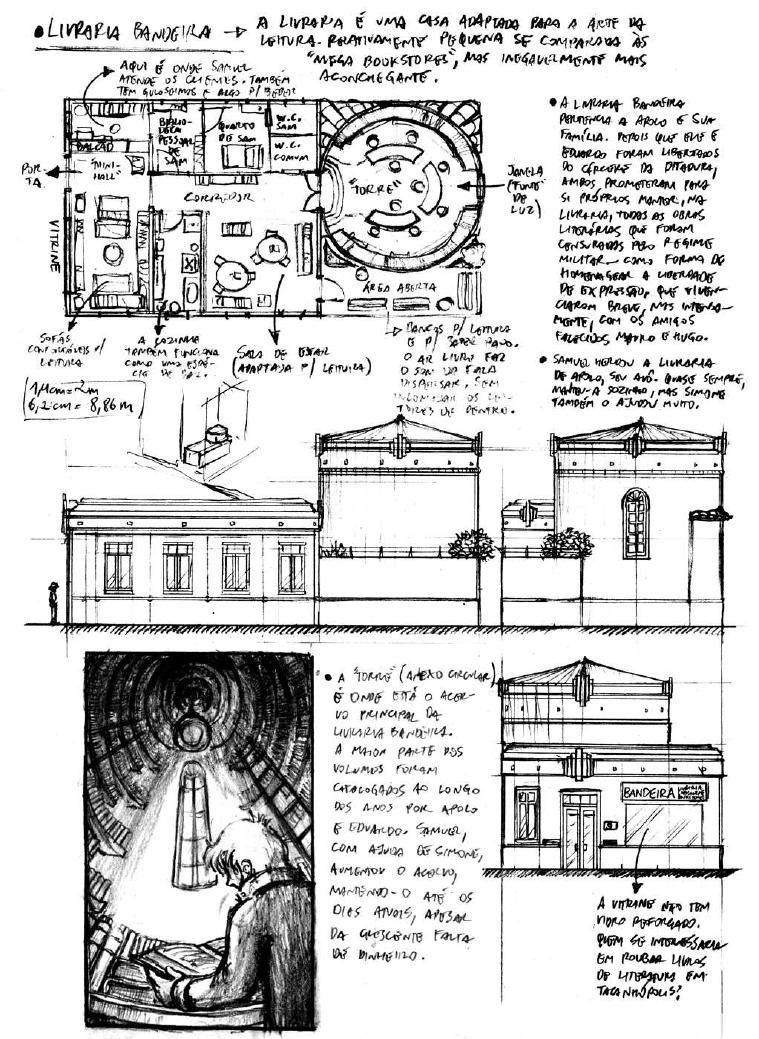 • LIVRARIA BANDEIRA → A LIVRARIA É UMA CASA ADAPTADA PARA A ARTE DA
LEITURA. RELATIVAMENTE PEQUENA SE COMPARADA ÀS
"MEGA BOOKSTORES", MAS INEGAVELMENTE MAIS
ACONCHEGANTE.
AQUI É ONDE SAMUEL
ATENDE OS CLIENTES. TAMBÉM
TEM GULOSEIMAS E ALGO P/ BEBER
BALCÃO
"MINI-
HALL"
POR-
TA.
VITRINE
BIBLIO-
TECA
PESSOAL
DE
SAM
QUARTO
DE SAM
W.C.
SAM
W.C.
COMUM
CORREDOR
"TORRE"
JANELA
(FONTE
DE
LUZ)
ÁREA ABERTA
SOFÁS
CONFORTÁVEIS P/
LEITURA
A COZINHA
TAMBÉM FUNCIONA
COMO UMA ESPÉ-
CIE DE
SALA DE ESTAR
(ADAPTADA P/ LEITURA)
BANCOS P/ LEITURA
E P/ BATER PAPO.
O AR LIVRE FAZ
O SOM DA FALA
DISPERSAR, SEM
INCOMODAR OS LEI-
TORES DE DENTRO.
6,2cm = 8,86m
• A LIVRARIA BANDEIRA
PERTENCIA A APOLO E SUA
FAMÍLIA. DEPOIS QUE ELE E
EDUARDO FORAM LIBERTADOS
DO CÁRCERE DA DITADURA,
AMBOS PROMETERAM PARA
SI PRÓPRIOS MANTER, NA
LIVRARIA, TODAS AS OBRAS
LITERÁRIAS QUE FORAM
CENSURADAS PELO REGIME
MILITAR — COMO FORMA DE
HOMENAGEAR A LIBERDADE
DE EXPRESSÃO, QUE VIVEN-
CIARAM BREVE, MAS INTENSA-
MENTE, COM OS AMIGOS
FALECIDOS MAURO E HUGO.
• SAMUEL HERDOU A LIVRARIA
DE APOLO, SEU AVÔ. QUASE SEMPRE,
MANTEU-A SOZINHO, MAS SIMONE
TAMBÉM O AJUDOU MUITO.
• A "TORRE" (ANEXO CIRCULAR)
É ONDE ESTÁ O ACER-
VO PRINCIPAL DA
LIVRARIA BANDEIRA.
A MAIOR PARTE DOS
VOLUMES FORAM
CATALOGADOS AO LONGO
DOS ANOS POR APOLO
E EDUARDO. SAMUEL,
COM AJUDA DE SIMONE,
AUMENTOU O ACERVO,
MANTENDO-O ATÉ OS
DIAS ATUAIS, APESAR
DA CRESCENTE FALTA
DE DINHEIRO.
BANDEIRA
A VITRINE NÃO TEM
VIDRO REFORÇADO.
QUEM SE INTERESSARIA
EM ROUBAR LIVROS
DE LITERATURA EM
TACANHÓPOLIS?